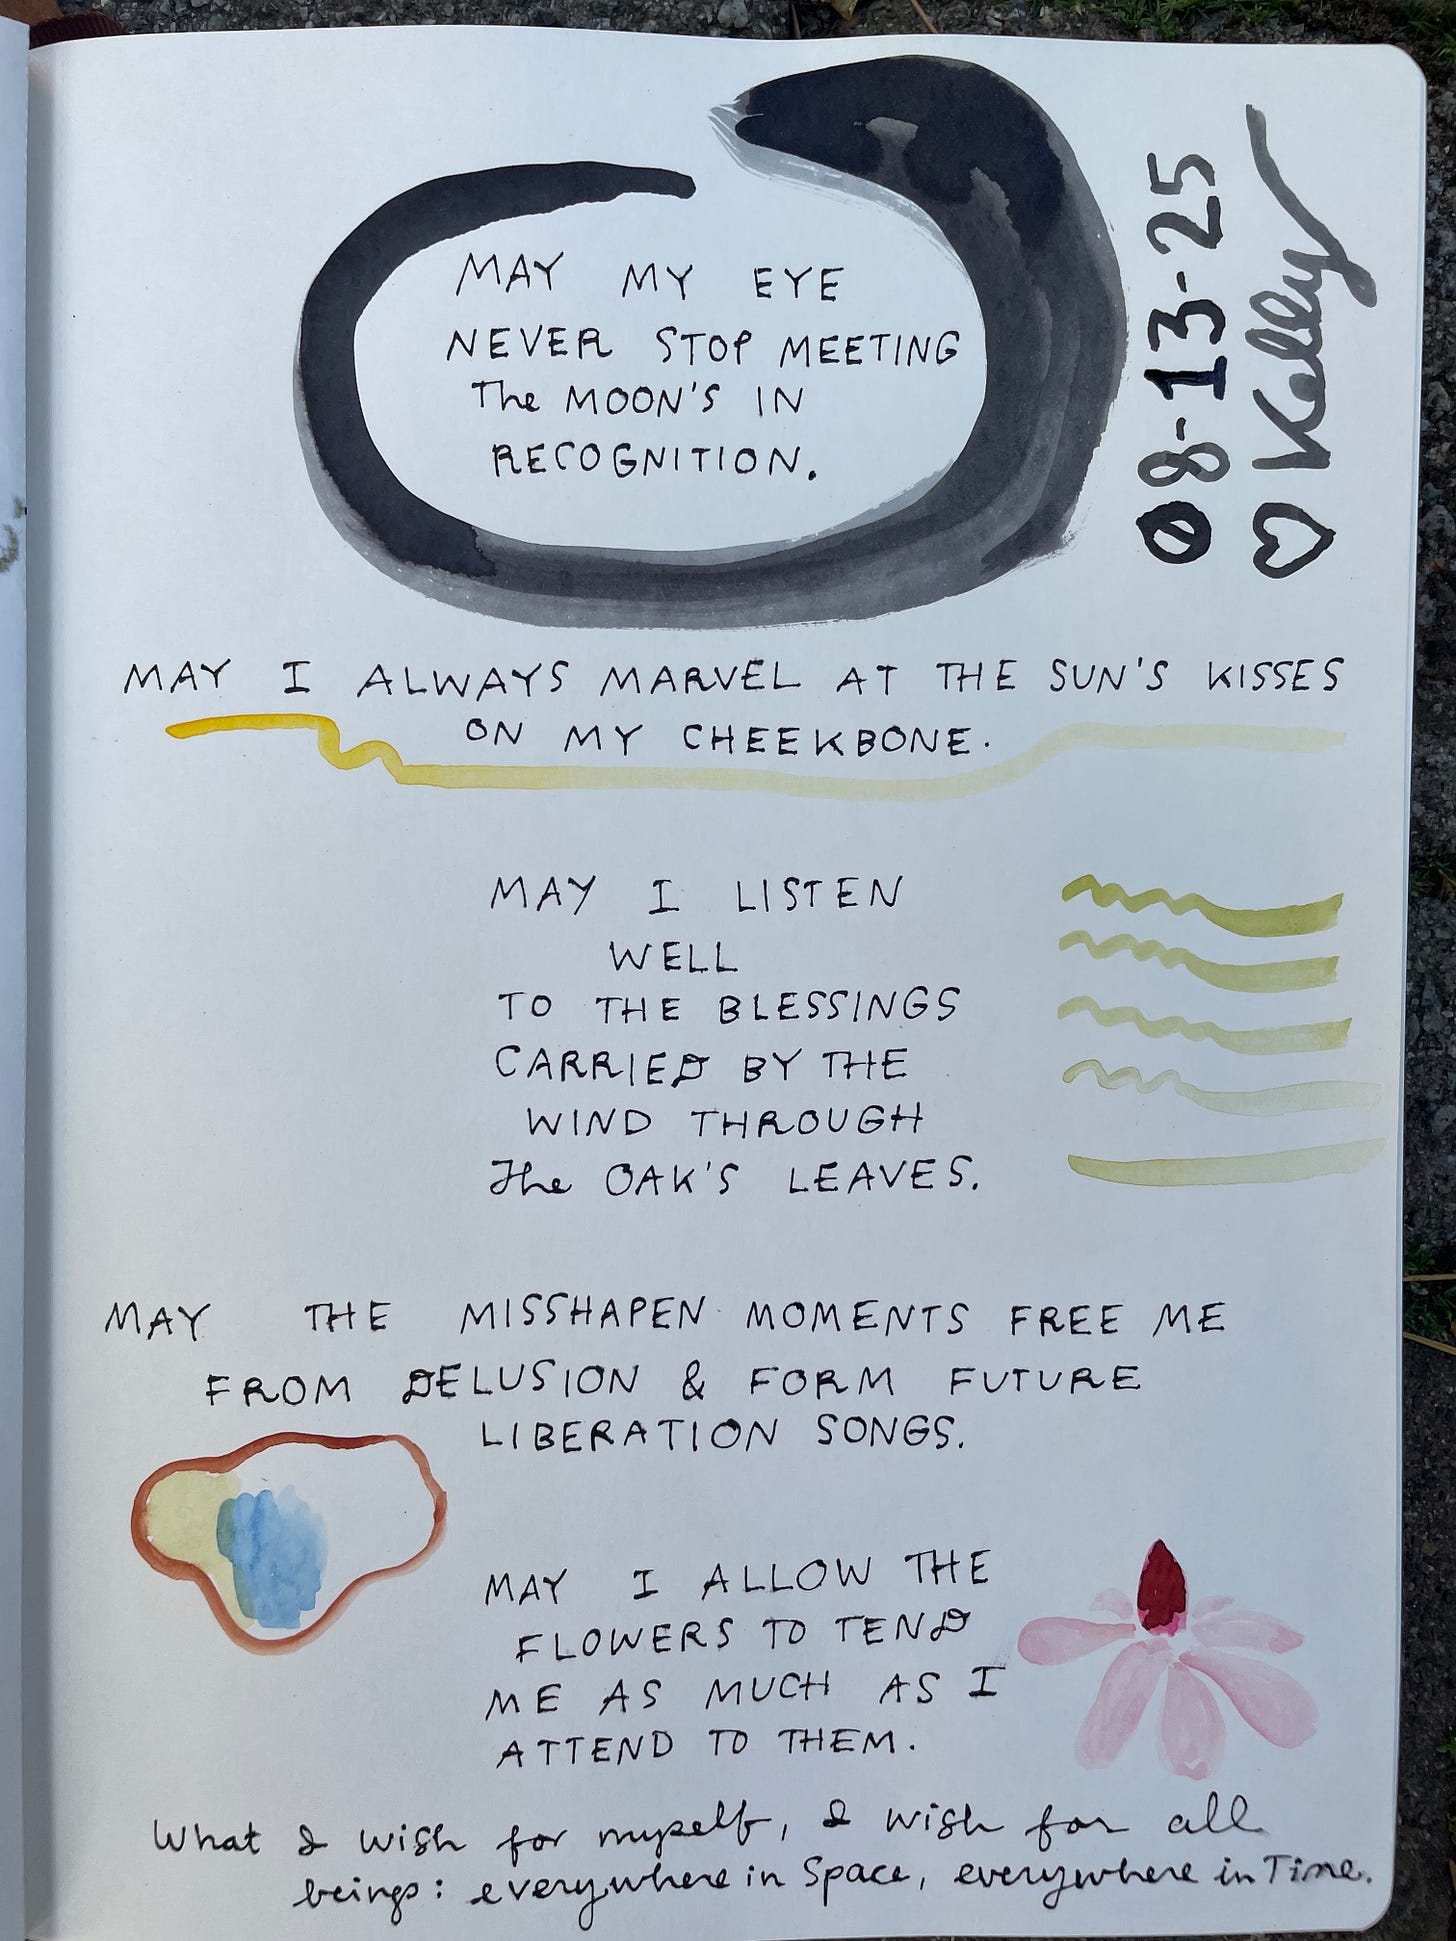 MAY MY EYE
NEVER STOP MEETING
The MOON'S IN
RECOGNITION.
08-13-25
♡ Kelly
MAY I ALWAYS MARVEL AT THE SUN'S KISSES
ON MY CHEEKBONE.
MAY I LISTEN
WELL
TO THE BLESSINGS
CARRIED BY THE
WIND THROUGH
The OAK'S LEAVES.
MAY THE MISSHAPEN MOMENTS FREE ME
FROM DELUSION & FORM FUTURE
LIBERATION SONGS.
MAY I ALLOW THE
FLOWERS TO TEND
ME AS MUCH AS I
ATTEND TO THEM.
What I wish for myself, I wish for all
beings: everywhere in Space, everywhere in Time.